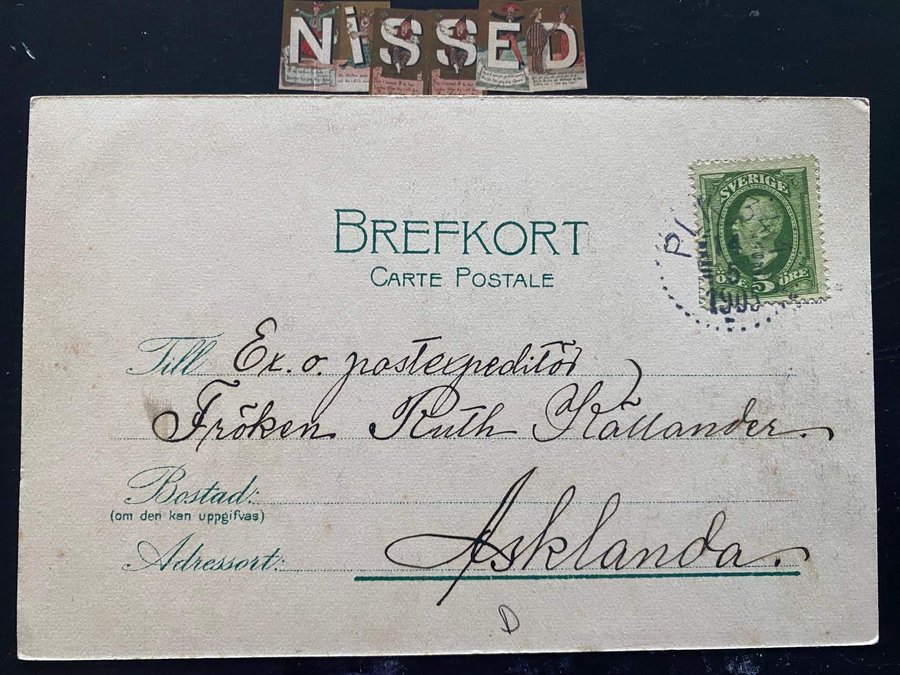 NiSSED
BREFKORT
CARTE POSTALE
SVERIGE
5 ÖRE
1903
Till Ex. o. postexpeditör
Fröken Ruth Källander.
Bostad:
(om den kan uppgifvas)
Adressort: Asklanda.
D